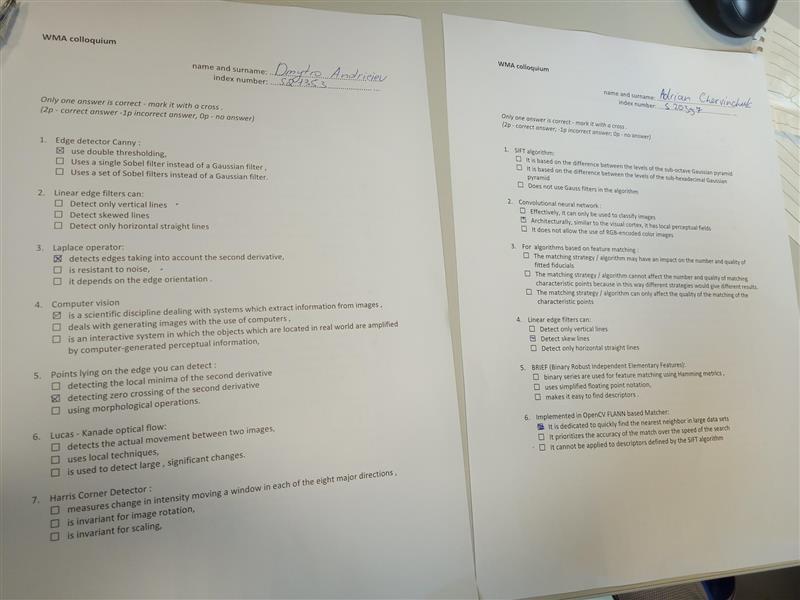 WMA colloquium
name and surname: Dmytro Andriciev
index number: S24353
Only one answer is correct - mark it with a cross .
(2p - correct answer -1p incorrect answer, 0p - no answer)
1. Edge detector Canny :
☒ use double thresholding,
☐ Uses a single Sobel filter instead of a Gaussian filter ,
☐ Uses a set of Sobel filters instead of a Gaussian filter.
2. Linear edge filters can:
☐ Detect only vertical lines
☐ Detect skewed lines
☐ Detect only horizontal straight lines
3. Laplace operator:
☒ detects edges taking into account the second derivative,
☐ is resistant to noise,
☐ it depends on the edge orientation .
4. Computer vision
☒ is a scientific discipline dealing with systems which extract information from images ,
☐ deals with generating images with the use of computers ,
☐ is an interactive system in which the objects which are located in real world are amplified
by computer-generated perceptual information,
5. Points lying on the edge you can detect :
☐ detecting the local minima of the second derivative
☒ detecting zero crossing of the second derivative
☐ using morphological operations.
6. Lucas - Kanade optical flow:
☐ detects the actual movement between two images,
☐ uses local techniques,
☐ is used to detect large , significant changes.
7. Harris Corner Detector :
☐ measures change in intensity moving a window in each of the eight major directions ,
☐ is invariant for image rotation,
☐ is invariant for scaling,
WMA colloquium
name and surname: Adrian Chervinchuk
index number: S20397
Only one answer is correct - mark it with a cross .
(2p - correct answer; -1p incorrect answer; 0p - no answer)
1. SIFT algorithm:
☐ It is based on the difference between the levels of the sub-octave Gaussian pyramid
☐ It is based on the difference between the levels of the sub-hexadecimal Gaussian
pyramid
☐ Does not use Gauss filters in the algorithm
2. Convolutional neural network :
☐ Effectively, it can only be used to classify images
☒ Architecturally, similar to the visual cortex, it has local perceptual fields
☐ It does not allow the use of RGB-encoded color images
3. For algorithms based on feature matching :
☐ The matching strategy / algorithm may have an impact on the number and quality of
fitted fiducials
☐ The matching strategy / algorithm cannot affect the number and quality of matching
characteristic points because in this way different strategies would give different results.
☐ The matching strategy / algorithm can only affect the quality of the matching of the
characteristic points
4. Linear edge filters can:
☐ Detect only vertical lines
☒ Detect skew lines
☐ Detect only horizontal straight lines
5. BRIEF (Binary Robust Independent Elementary Features):
☐ binary series are used for feature matching using Hamming metrics ,
☐ uses simplified floating point notation,
☐ makes it easy to find descriptors .
6. Implemented in OpenCV FLANN based Matcher:
☒ It is dedicated to quickly find the nearest neighbor in large data sets
☐ It prioritizes the accuracy of the match over the speed of the search
☐ It cannot be applied to descriptors defined by the SIFT algorithm